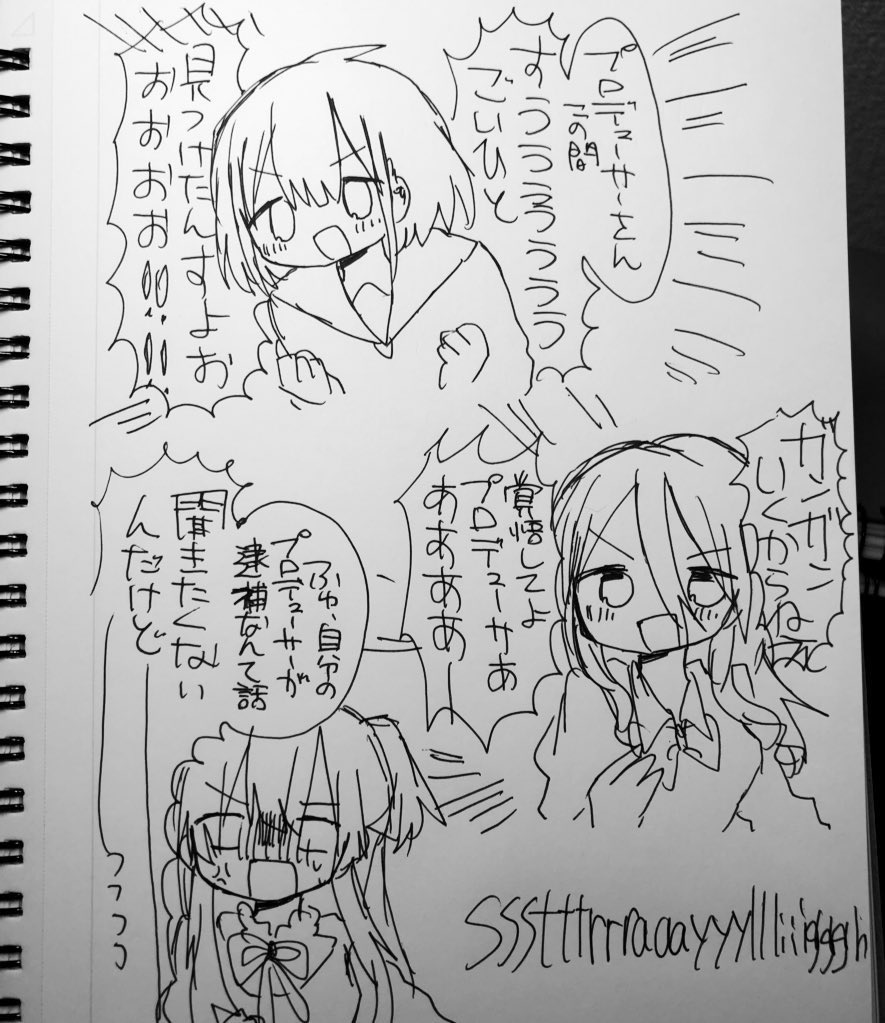 プロデューサーさん
この間
すうううううううう
ごいひと
見つけたんすよお
おおおおお!!!!
ガンガン
いくからねえ
覚悟してよ
プロデューサあ
ああああ
ふゆ、自分の
プロデューサーが
逮捕なんて話
聞きたくない
んだけど
っっっっ
Ssstttrrraaayyyllliiiggggh